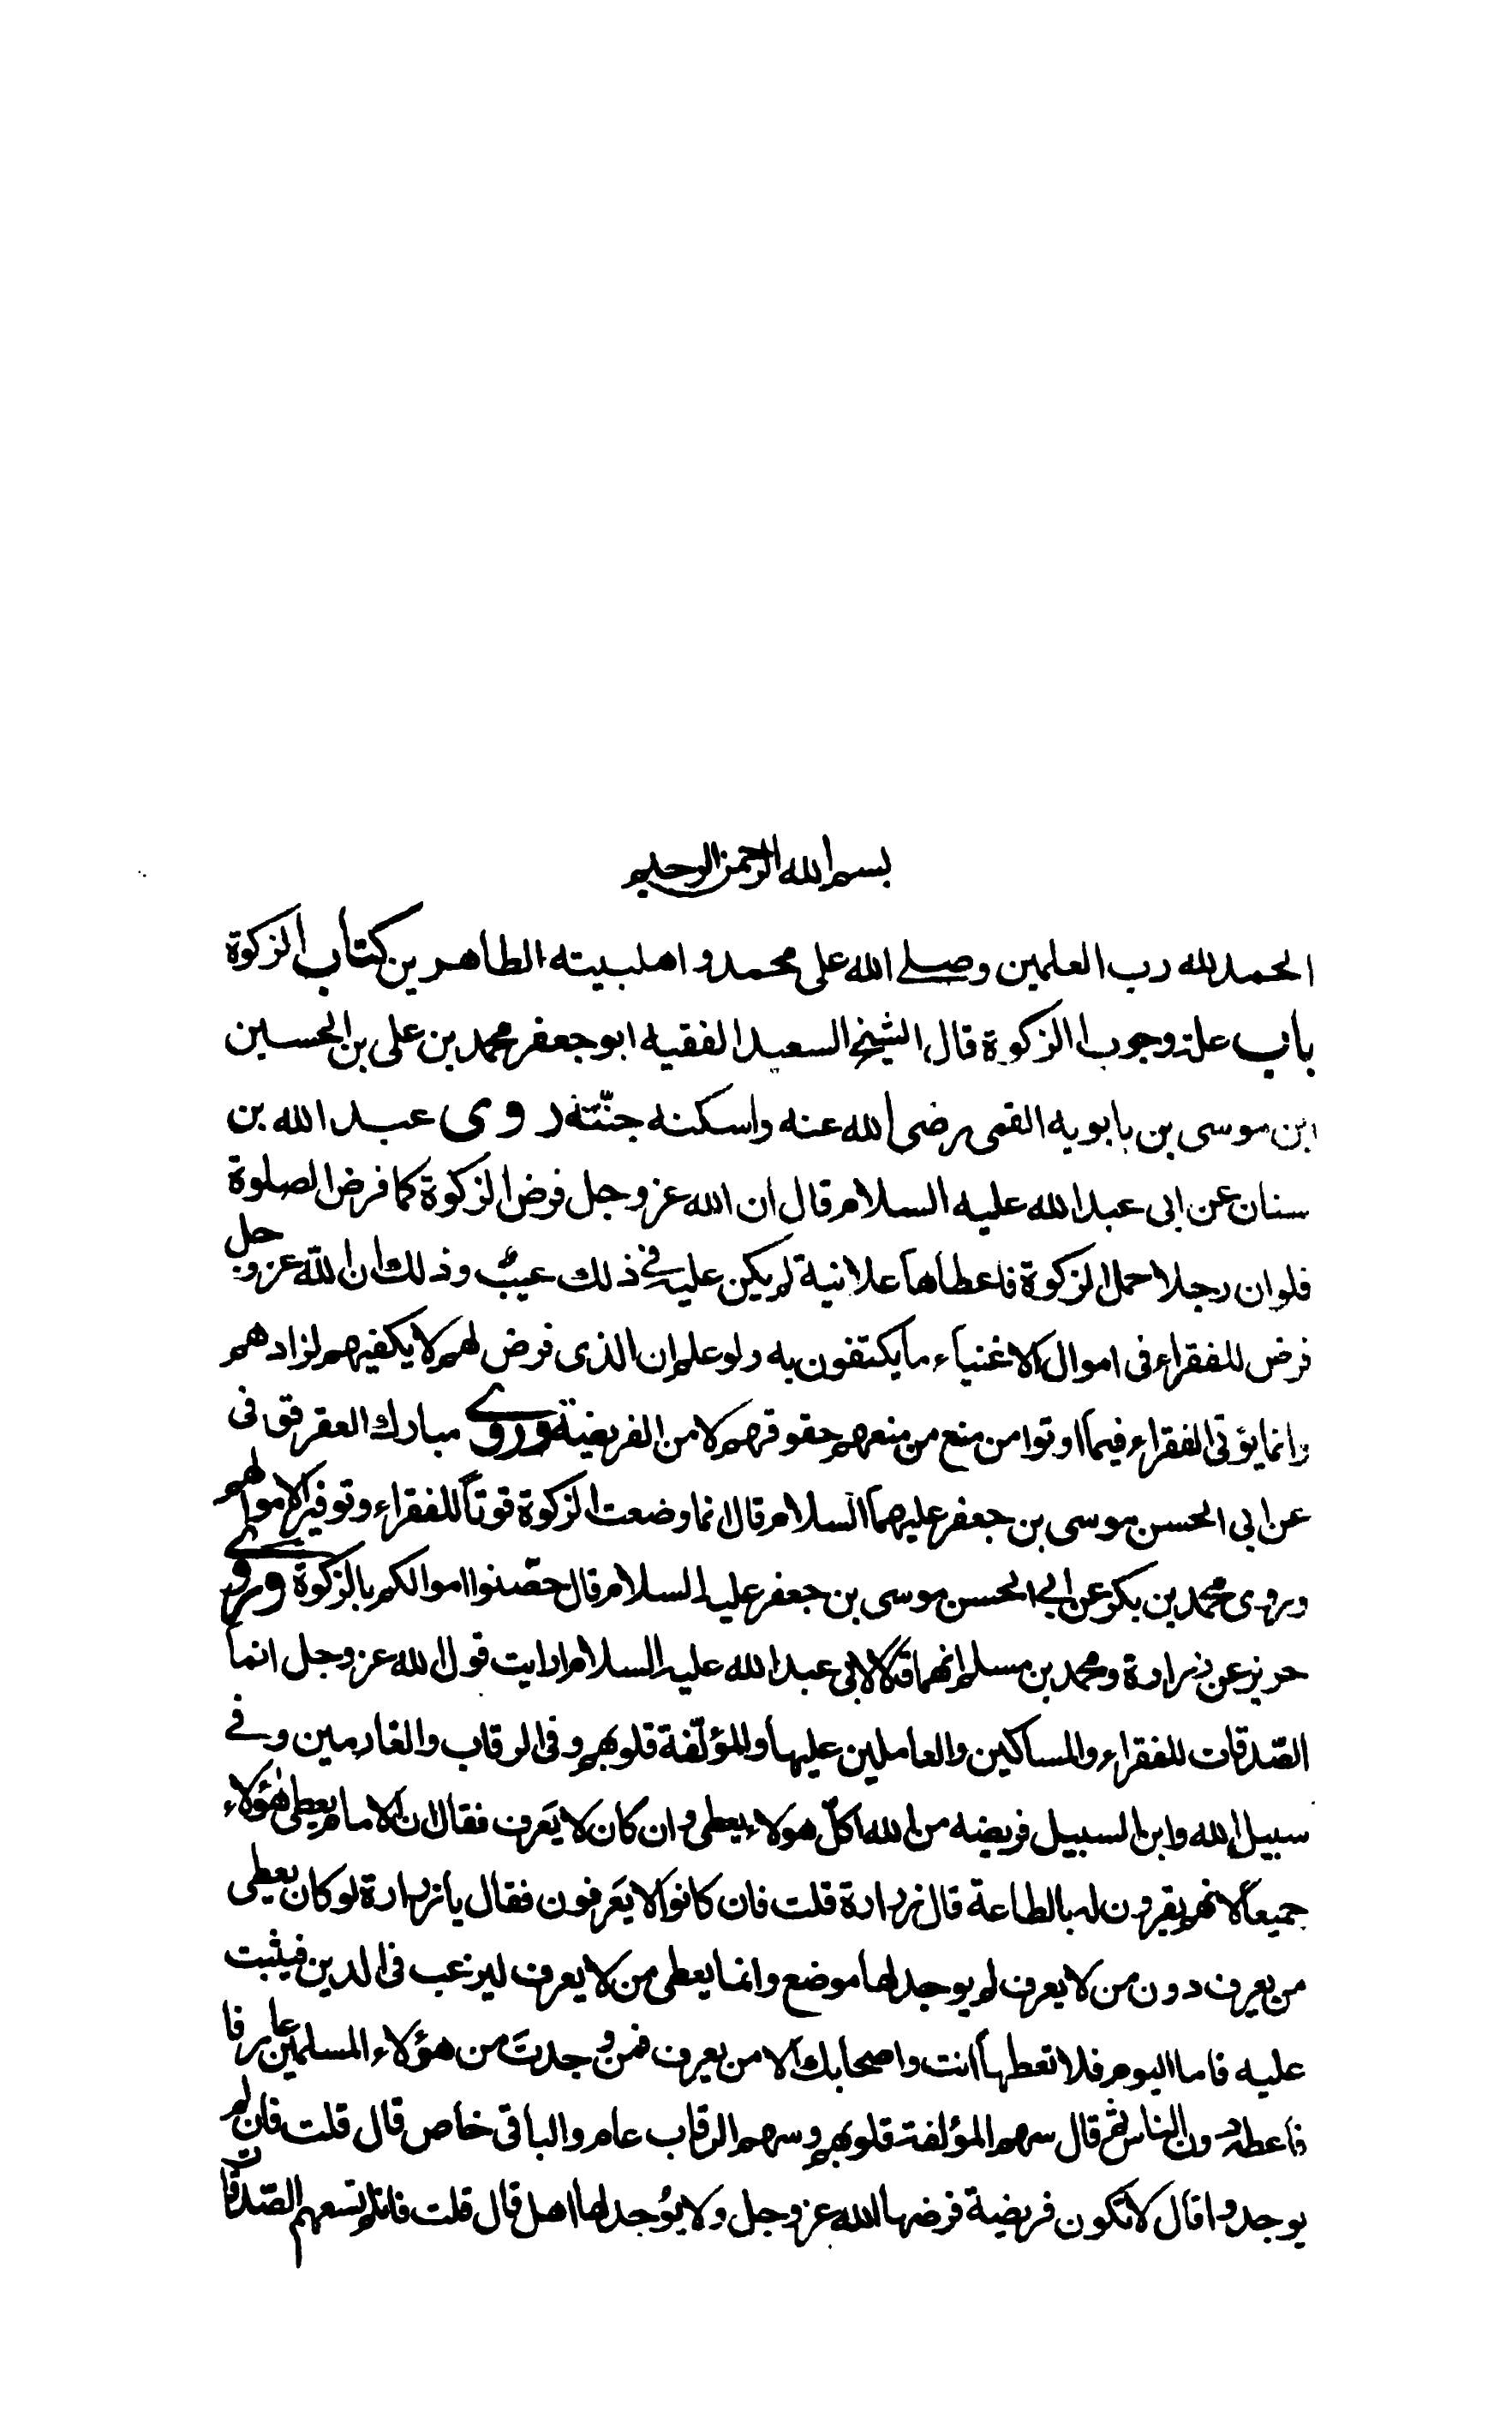 بسم الله الرحمن الرحيم
الحمد لله رب العلمين وصلے الله على محمد و اهلبيته الطاهرين كتاب الزكوة
باب علة وجوب الزكوة قال الشيخ السعيد الفقيه ابو جعفر محمد بن على بن الحسين
ابن موسى بن بابويه القمى رضى الله عنه واسكنه جنّته روى عبد الله بن
سنان عن ابى عبد الله عليه السلام قال ان الله عز وجل فرض الزكوة كما فرض الصلوة
فلو ان رجلا حمل الزكوة فاعطاها علانية لم يكن عليه فے ذلك عيبٌ وذلك ان اللّه عز وجل
فرض للفقراء فى اموال الاغنياء ما يكتفون به ولو علم ان الذى فرض لهم لا يكفيهم لزادهم
وانما يؤتى الفقراء فيما اوتوا من منع من منعهم حقوقهم لا من الفريضة وروے مبارك العقرقوفى
عن ابى الحسن موسى بن جعفر عليهما السلام قال انما وضعت الزكوة قوتاً للفقراء وتوفيرا لاموالهم
وروى محمد بن بكر عن ابي الحسن موسى بن جعفر عليه السلام قال حصّنوا اموالكم بالزكوة وروے
حريز عن زرارة ومحمد بن مسلم انهما قالا لابى عبد الله عليه السلام ارايت قول الله عز وجل انما
الصّدقات للفقراء والمساكين والعاملين عليها والمؤلّفة قلوبهم وفى الرقاب والغارمين وفے
سبيل الله وابن السبيل فريضه من الله اكلّ هولاء يعطى و ان كان لا يَعرف فقال ان الامام يعطى هؤلاء
جميعاً لانهم يقرون له بالطاعة قال زرارة قلت فان كانوا لا يَعرفون فقال يا زرارة لو كان يعطى
من يعرف دون من لا يعرف لم يوجد لها موضع وانما يعطى من لا يعرف ليرغب فى الدين فيثبت
عليه فاما اليوم فلا تعطها انت واصحابك الا من يعرف فمن وجدتَ من هؤلاء المسلمين عارفا
فاعطه دون الناس ثم قال سهم المؤلفة قلوبهم وسهم الرقاب عام والباقى خاص قال قلت فان لم
يوجدوا قال لا تكون فريضة فرضها الله عز وجل ولا يُوجد لها اهل قال قلت فان لم تسعهم الصّدقات